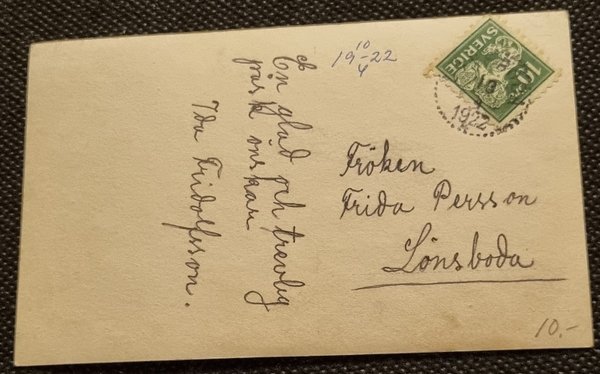 19 10/4 -22
En glad och trevlig
påsk önskar
Ida Fridolfsson.
SVERIGE
10
1922
Fröken
Frida Persson
Lönsboda
10.-